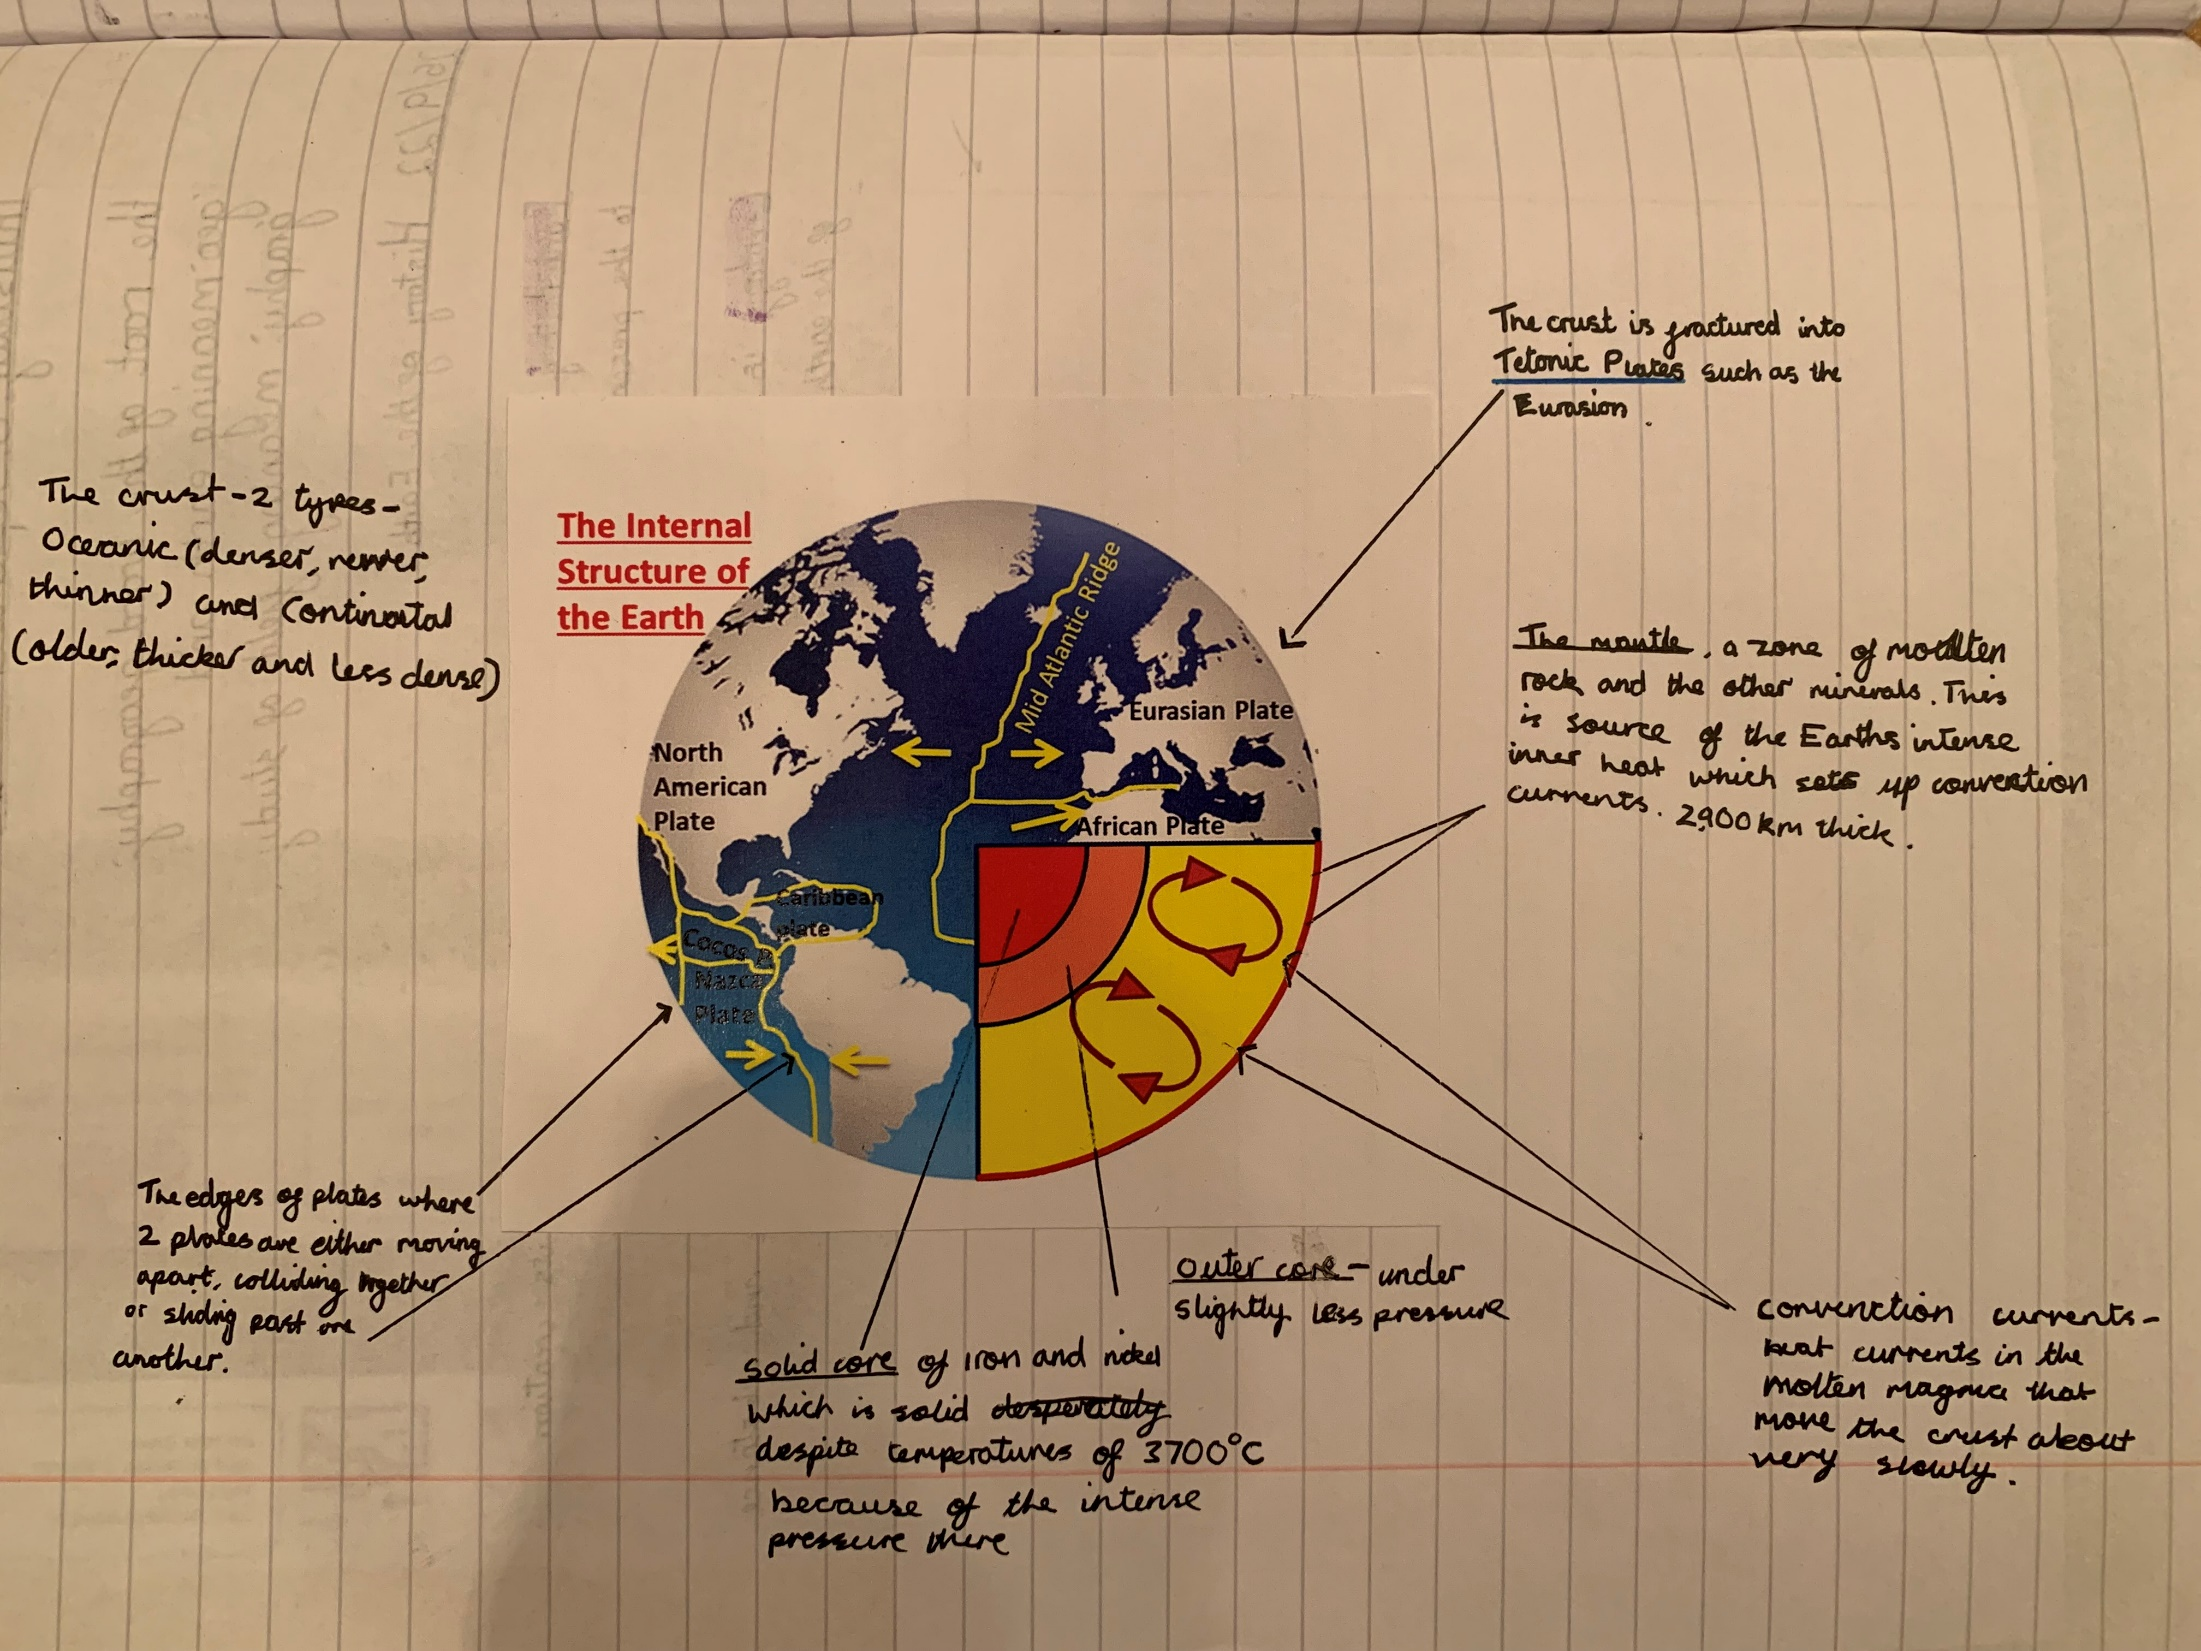 The crust is fractured into
Tetonic Plates such as the
Eurasion.
The crust - 2 types -
Oceanic (denser, newer,
thinner) and Continental
(older, thicker and less dense)
The Internal
Structure of
the Earth
Mid Atlantic Ridge
Eurasian Plate
North
American
Plate
African Plate
Caribbean
plate
Cocos P
Nazca
Plate
The mantle, a zone of moulten
rock and the other minerals. This
is source of the Earths intense
inner heat which sets up convention
currents. 2,900 km thick.
The edges of plates where
2 plates are either moving
apart, colliding together
or sliding past one
another.
outer core - under
slightly less pressure
solid core of Iron and nickel
which is solid desperately
despite temperatures of 3700°C
because of the intense
pressure there
convenction currents -
heat currents in the
molten magma that
move the crust about
very slowly.